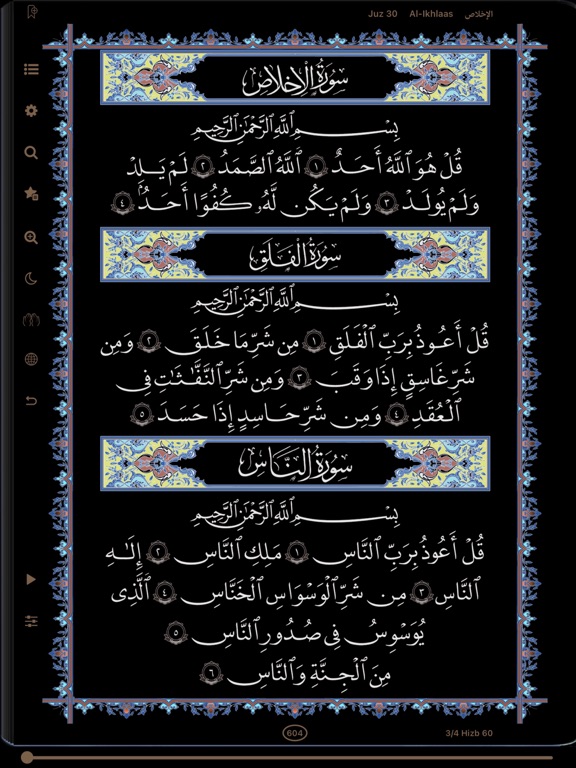 Juz 30 Al-Ikhlaas الإخلاص
سُورَةُ الْإِخْلَاصِ
بِسْمِ ٱللَّهِ ٱلرَّحْمَٰنِ ٱلرَّحِيمِ
قُلْ هُوَ ٱللَّهُ أَحَدٌ ١ ٱللَّهُ ٱلصَّمَدُ ٢ لَمْ يَلِدْ
وَلَمْ يُولَدْ ٣ وَلَمْ يَكُن لَّهُۥ كُفُوًا أَحَدٌۢ ٤
سُورَةُ الْفَلَقِ
بِسْمِ ٱللَّهِ ٱلرَّحْمَٰنِ ٱلرَّحِيمِ
قُلْ أَعُوذُ بِرَبِّ ٱلْفَلَقِ ١ مِن شَرِّ مَا خَلَقَ ٢ وَمِن
شَرِّ غَاسِقٍ إِذَا وَقَبَ ٣ وَمِن شَرِّ ٱلنَّفَّٰثَٰتِ فِى
ٱلْعُقَدِ ٤ وَمِن شَرِّ حَاسِدٍ إِذَا حَسَدَ ٥
سُورَةُ النَّاسِ
بِسْمِ ٱللَّهِ ٱلرَّحْمَٰنِ ٱلرَّحِيمِ
قُلْ أَعُوذُ بِرَبِّ ٱلنَّاسِ ١ مَلِكِ ٱلنَّاسِ ٢ إِلَٰهِ
ٱلنَّاسِ ٣ مِن شَرِّ ٱلْوَسْوَاسِ ٱلْخَنَّاسِ ٤ ٱلَّذِى
يُوَسْوِسُ فِى صُدُورِ ٱلنَّاسِ ٥
مِنَ ٱلْجِنَّةِ وَٱلنَّاسِ ٦
604
3/4 Hizb 60